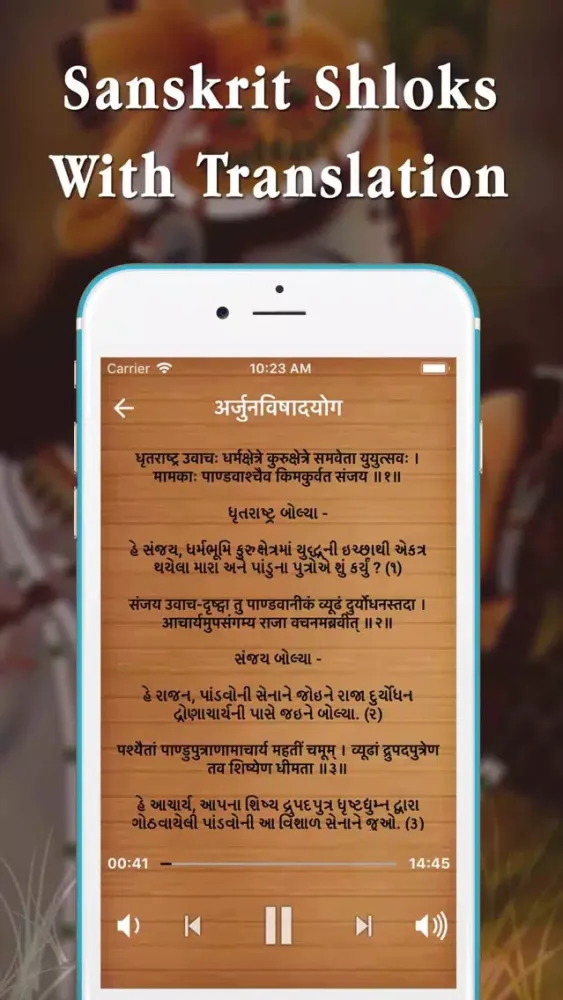 Sanskrit Shloks
With Translation
Carrier
10:23 AM
अर्जुनविषादयोग
धृतराष्ट्र उवाचः धर्मक्षेत्रे कुरुक्षेत्रे समवेता युयुत्सवः ।
मामकाः पाण्डवाश्चैव किमकुर्वत संजय ॥१॥
ધૃતરાષ્ટ્ર બોલ્યા -
હે સંજય, ધર્મભૂમિ કુરુક્ષેત્રમાં યુદ્ધની ઇચ્છાથી એકત્ર
થયેલા મારા અને પાંડુના પુત્રોએ શું કર્યું ? (૧)
संजय उवाच-दृष्ट्वा तु पाण्डवानीकं व्यूढं दुर्योधनस्तदा ।
आचार्यमुपसंगम्य राजा वचनमब्रवीत् ॥२॥
સંજય બોલ્યા -
હે રાજન, પાંડવોની સેનાને જોઇને રાજા દુર્યોધન
દ્રોણાચાર્યની પાસે જઇને બોલ્યા. (૨)
पश्यैतां पाण्डुपुत्राणामाचार्य महतीं चमूम् । व्यूढां द्रुपदपुत्रेण
तव शिष्येण धीमता ॥३॥
હે આચાર્ય, આપના શિષ્ય દ્રુપદપુત્ર ધૃષ્ટદ્યુમ્ન દ્વારા
ગોઠવાયેલી પાંડવોની આ વિશાળ સેનાને જુઓ. (૩)
00:41
14:45